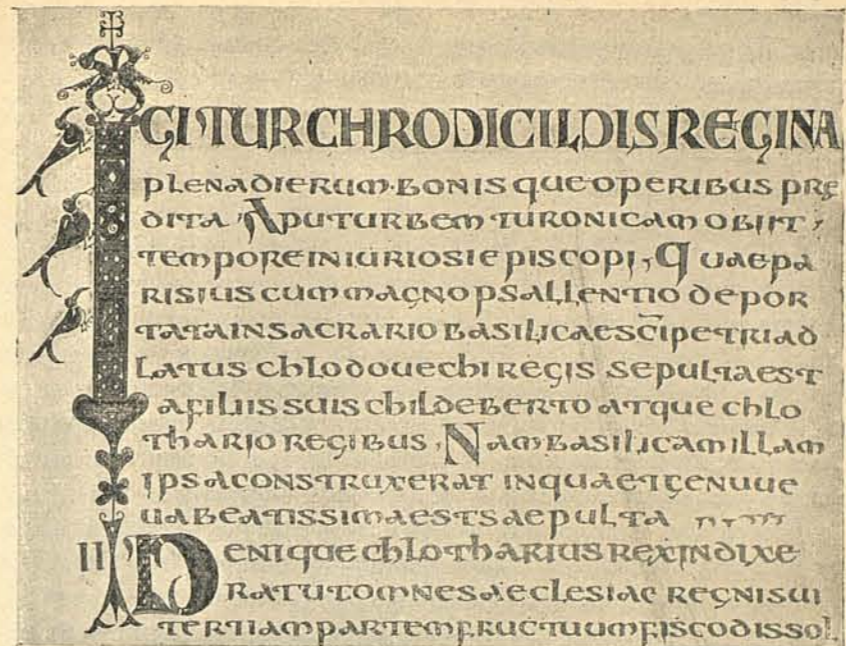 IGITUR CHRODICILDIS REGINA
plena dierum · bonisque operibus pre
dita , Aput urbem turonicam obiit ,
tempore iniuriosi episcopi , Quae pa
risius cum magno psallentio depor
tata in sacrario basilicae sc̅i petri ad
latus chlodouechi regis sepulta est
a filiis suis childeberto atque chlo
thario regibus , Nam basilicam illam
ipsa construxerat in qua et genuue
ua beatissima est saepulta
II Denique chlotharius rex indixe
rat ut omnes aeclesiae regni sui
tertiam partem fructuum fisco dissol